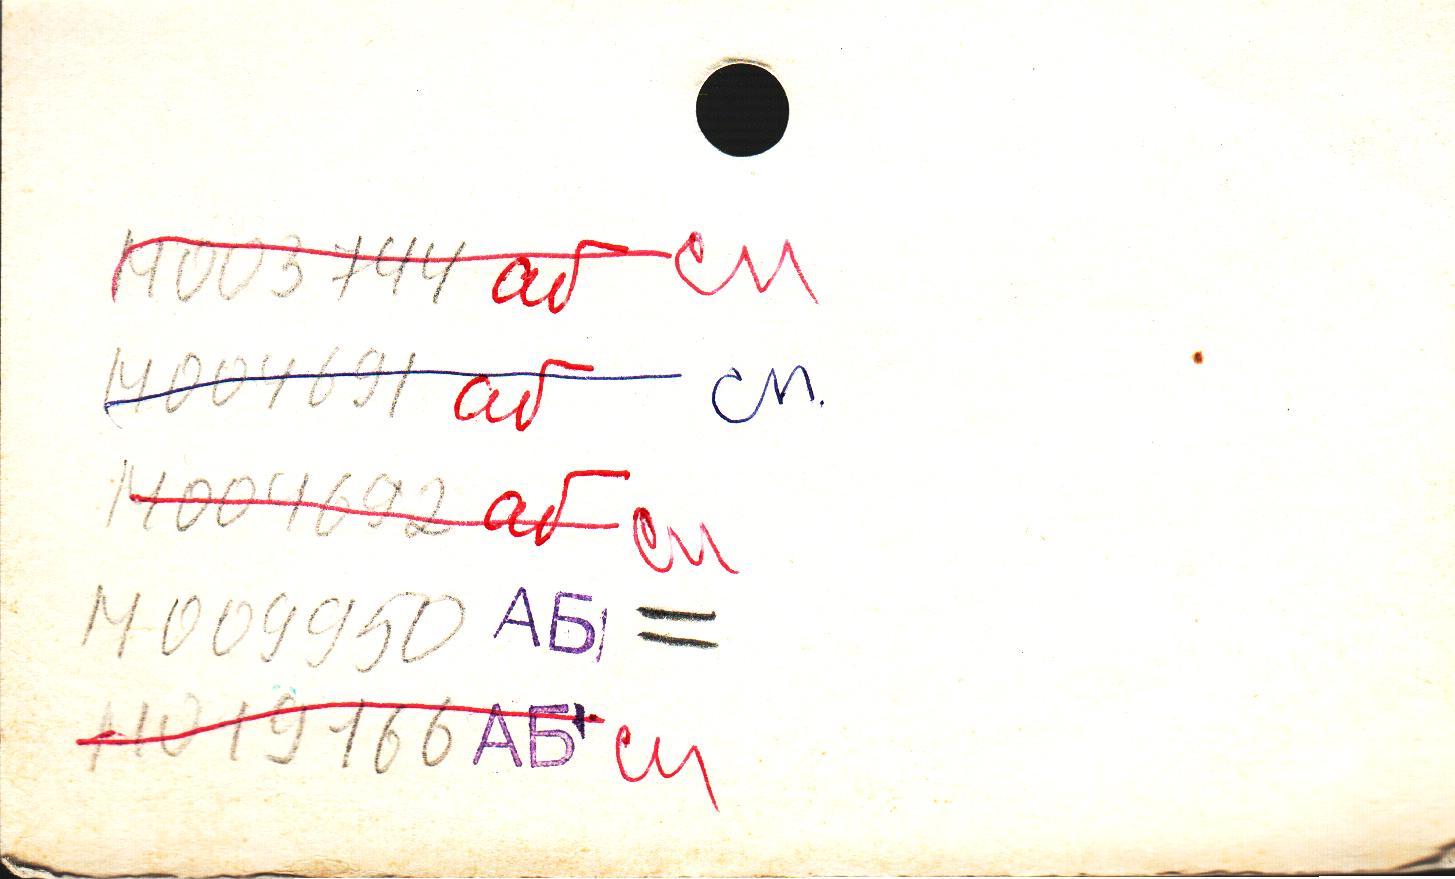 М003744 аб см
М004691 аб см.
М004692 аб см
М009950 АБ1 =
М019166 АБ1 см